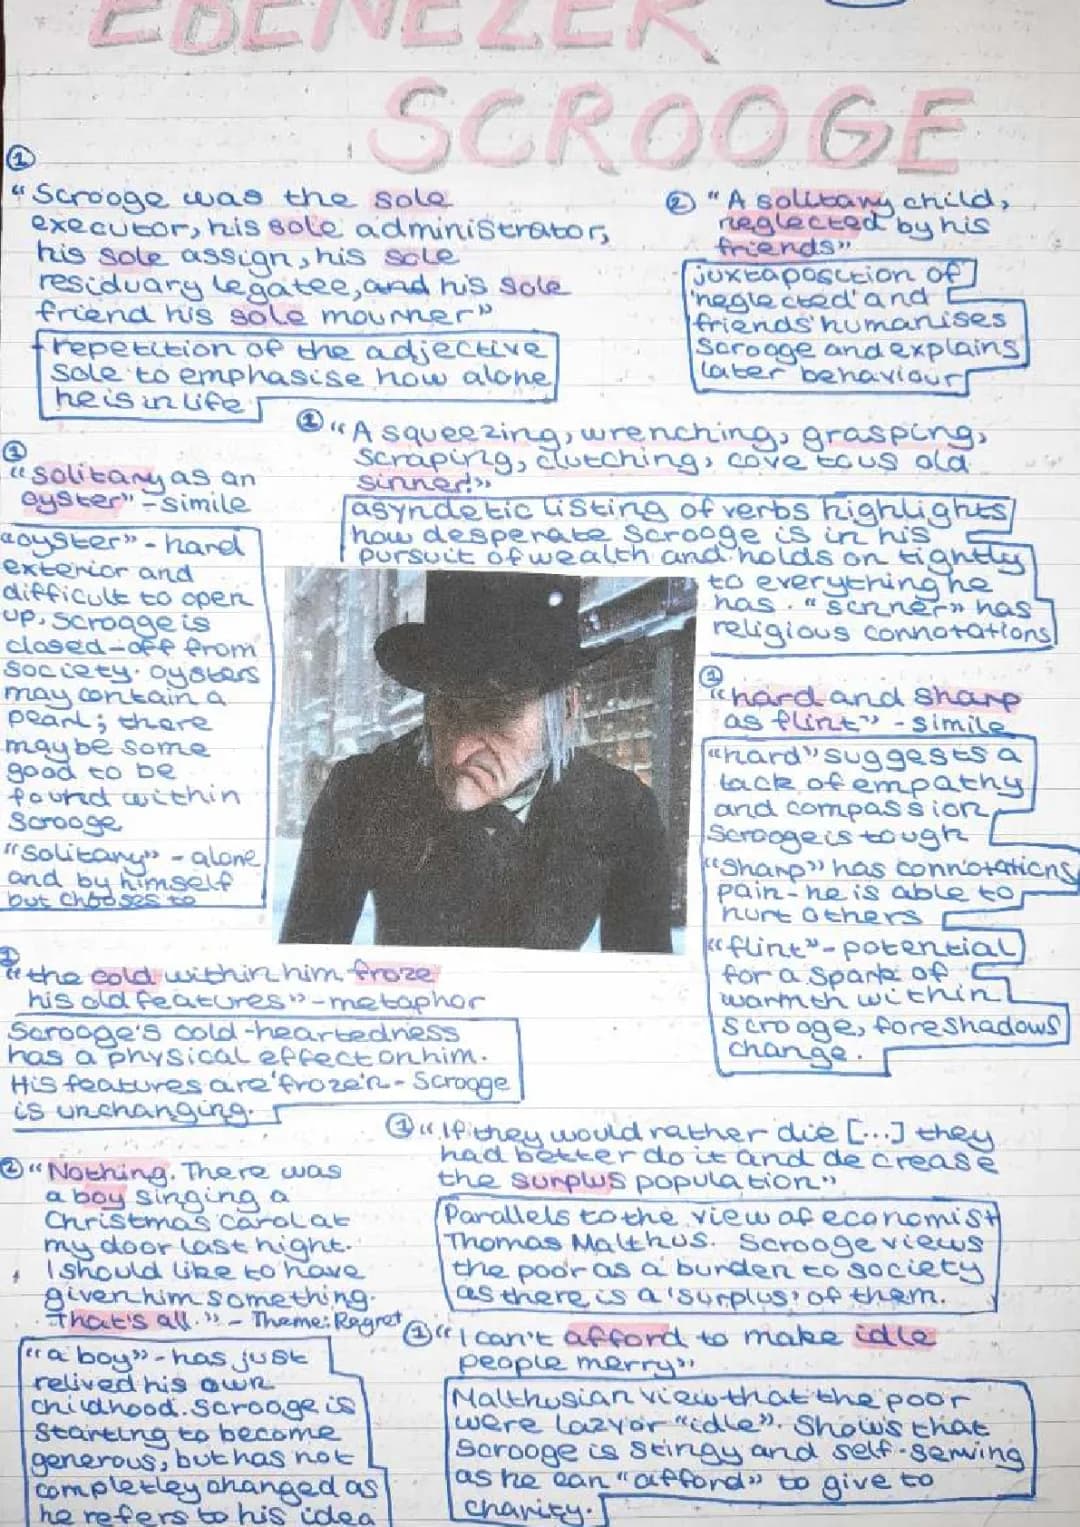 EBENEZER
SCROOGE
①
"Scrooge was the sole
executor, his sole administrator,
his sole assign, his sole
residuary legatee, and his sole
friend his sole mourner"
repetition of the adjective
sole to emphasise how alone
he is in life
② "A solitary child,
neglected by his
friends"
juxtaposition of
'neglected' and
friends' humanises
Scrooge and explains
later behaviour
① "A squeezing, wrenching, grasping,
scraping, clutching, covetous old
sinner!"
asyndetic listing of verbs highlights
how desperate Scrooge is in his
pursuit of wealth and holds on tightly
to everything he
has. "sinner" has
religious connotations
①
"solitary as an
oyster" - simile
"oyster" - hard
exterior and
difficult to open
up. Scrooge is
closed-off from
society. oysters
may contain a
pearl; there
maybe some
good to be
found within
Scrooge
"Solitary" - alone
and by himself
but chooses to
①
"hard and sharp
as flint" - simile
"hard" suggests a
lack of empathy
and compassion
Scrooge is tough
"Sharp" has connotations
pain - he is able to
hurt others
"flint" - potential
for a spark of
warmth within
scrooge, foreshadows
change.
①
"the cold within him froze
his old features" - metaphor
Scrooge's cold-heartedness
has a physical effect on him.
His features are 'frozen - Scrooge
is unchanging.
① "If they would rather die [...] they
had better do it and decrease
the surplus population"
Parallels to the view of economist
Thomas Malthus. Scrooge views
the poor as a burden to society
as there is a 'surplus' of them.
② "Nothing. There was
a boy singing a
Christmas carol at
my door last night.
I should like to have
given him something.
That's all." - Theme: Regret
"a boy" - has just
relived his own
childhood. Scrooge is
starting to become
generous, but has not
completley changed as
he refers to his idea
① "I can't afford to make idle
people merry"
Malthusian view that the poor
were lazy or "idle". Shows that
Scrooge is stingy and self-serving
as he can "afford" to give to
charity.